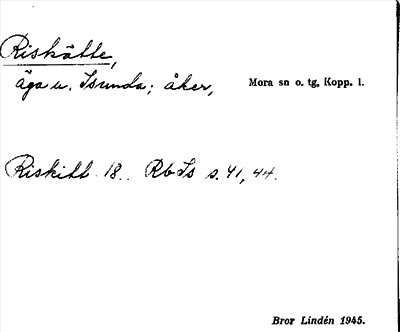 Riskätte,
äga u. Isunda; åker, Mora sn o. tg, Kopp. l.
Riskitt 18.. Rb Is s. 41, 44.
Bror Lindén 1945.